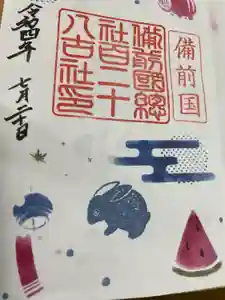 備前国
備前國總
社百二十
八古社印
令和四年
七月二十日